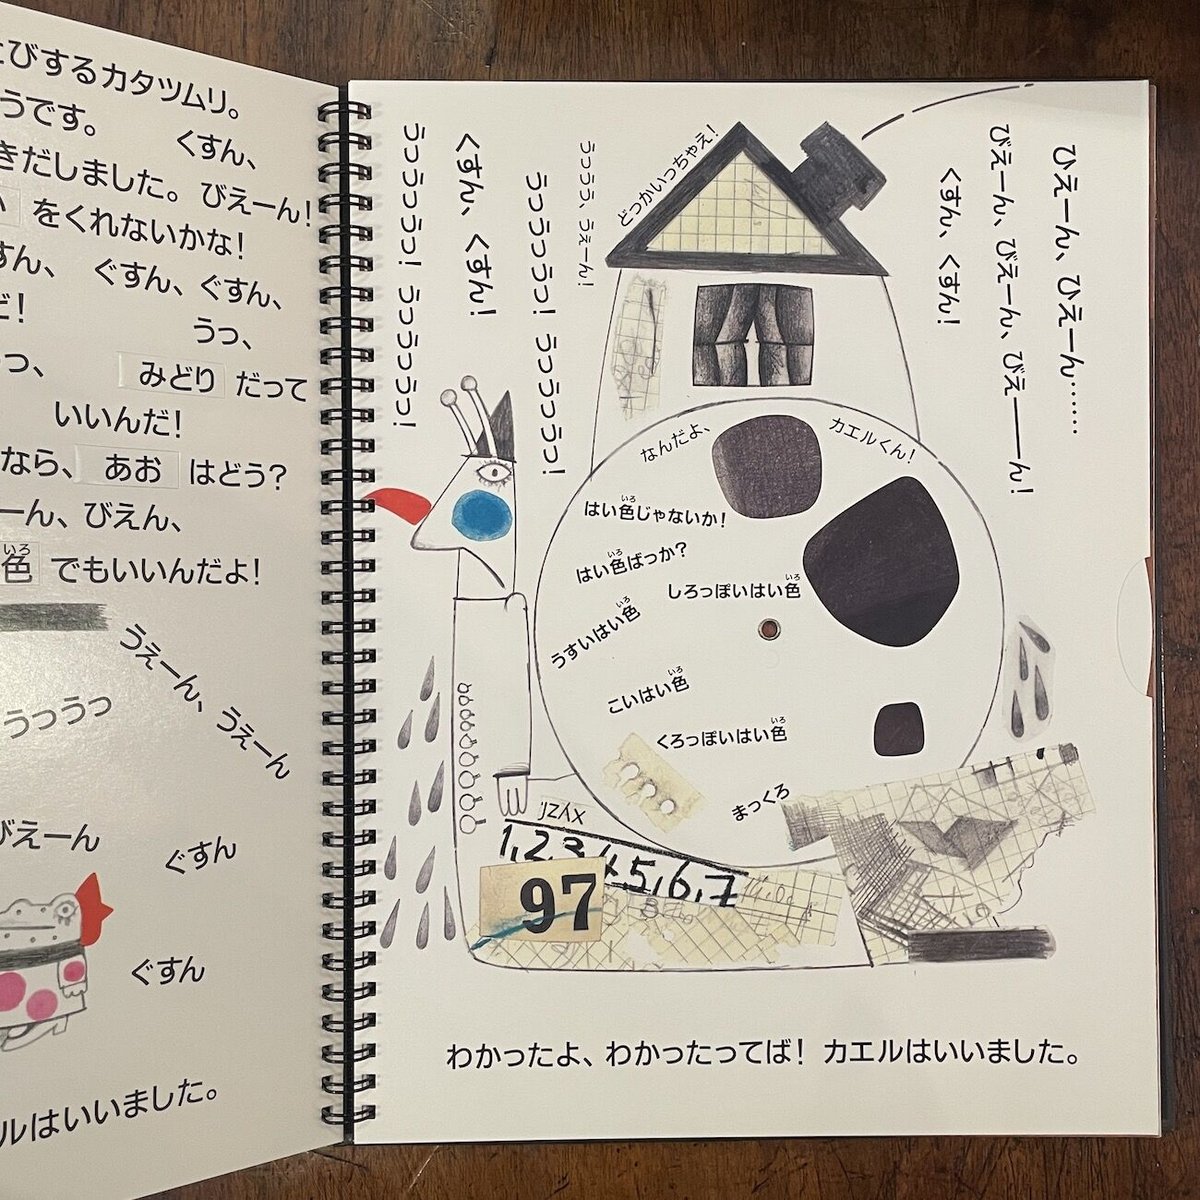 びするカタツムリ。
うです。 くすん、
きだしました。 びえーん!
い をくれないかな!
すん、 ぐすん、ぐすん、
だ!
うっ、
っ、 みどり だって
いいんだ!
なら、 あお はどう?
ーん、びえん、
色 でもいいんだよ!
いろ
うえーん、うえーん
うっうっ
びえーん
ぐすん
ぐすん
ルはいいました。
ひえーん、ひえーん……
びえーん、びえーん、びえ――ん!
くすん、くすん!
どっかいっちゃえ!
うっうう、うぇーん!
うっうっうっ! うっうっうっ!
くすん、くすん!
うっうっうっ! うっうっうっ!
なんだよ、
カエルくん!
はい色じゃないか!
いろ
はい色ばっか?
いろ
しろっぽいはい色
いろ
うすいはい色
いろ
こいはい色
いろ
くろっぽいはい色
いろ
まっくろ
1,2,3,4,5,6,7
97
わかったよ、わかったってば! カエルはいいました。